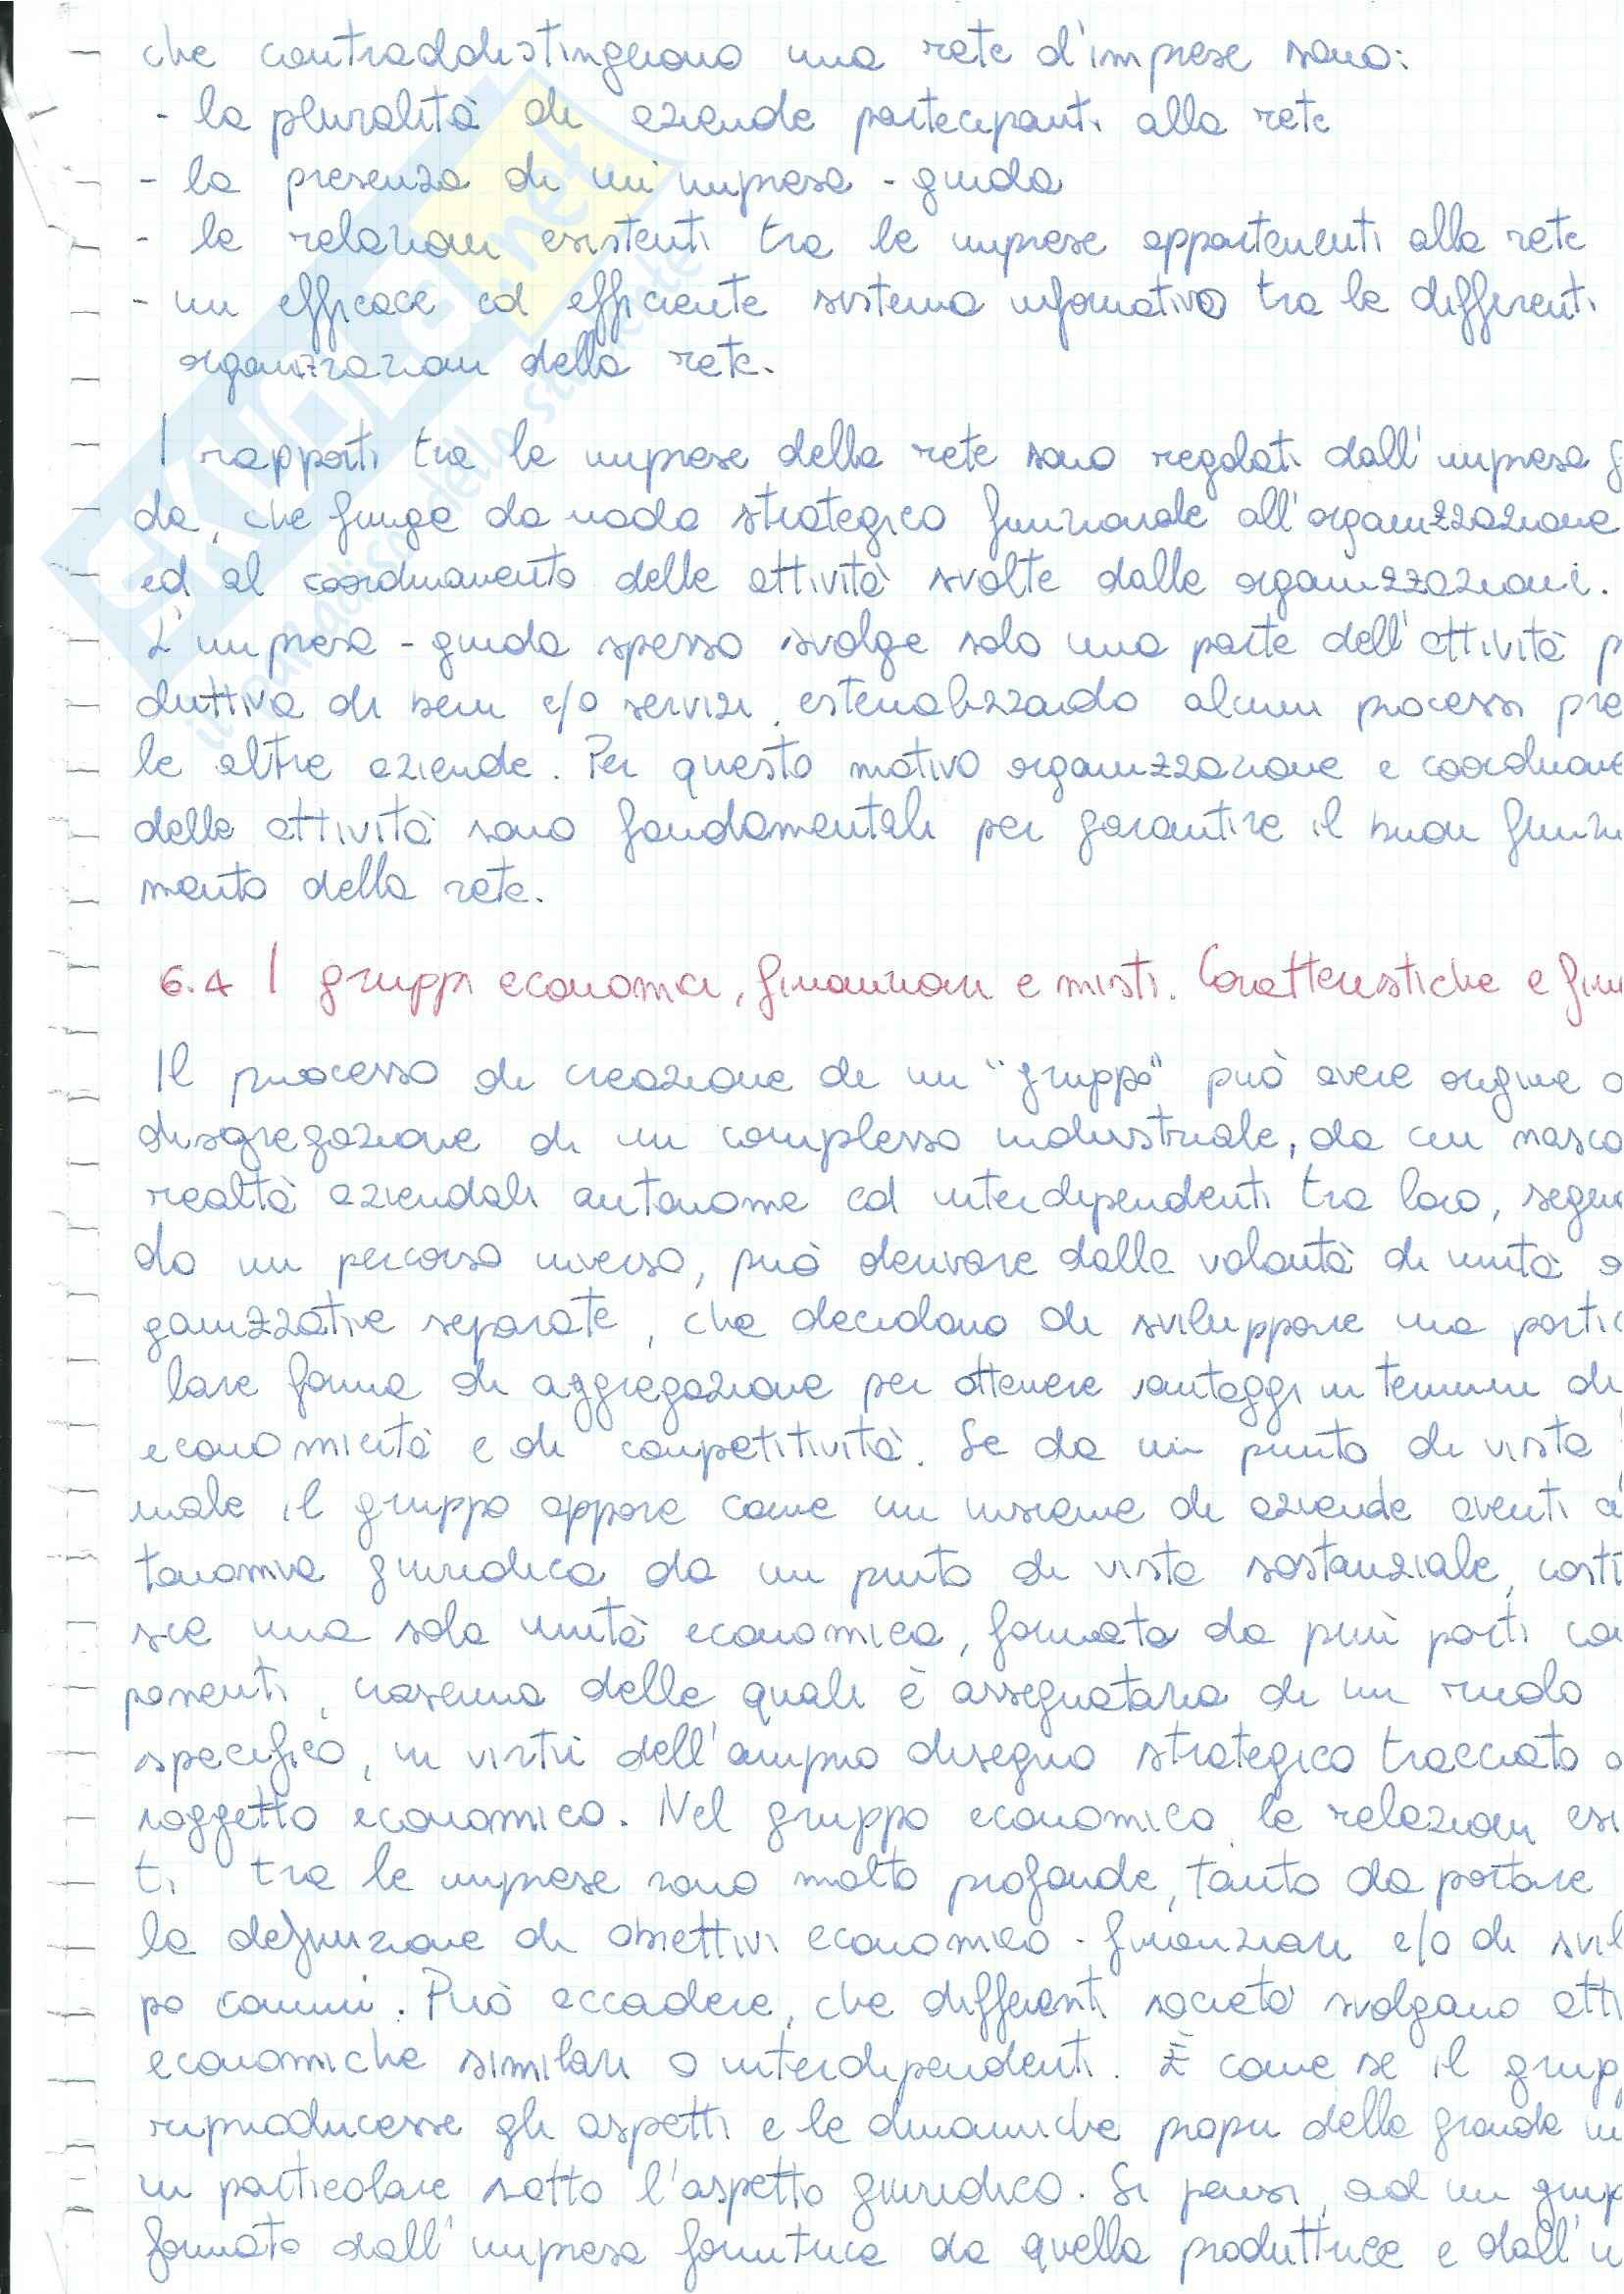 che contraddistinguono una rete d'imprese sono:
- la pluralità di aziende partecipanti alla rete
- la presenza di un'impresa - guida
- le relazioni esistenti tra le imprese appartenenti alla rete
- un efficace ed efficiente sistema informativo tra le differenti
organizzazioni della rete.
I rapporti tra le imprese della rete sono regolati dall'impresa g
da, che funge da nodo strategico funzionale all'organizzazione
ed al coordinamento delle attività svolte dalle organizzazioni.
L'impresa - guida spesso svolge solo una parte dell'attività p
duttiva di beni e/o servizi, esternalizzando alcuni processi pre
le altre aziende. Per questo motivo organizzazione e coordiname
delle attività sono fondamentali per garantire il buon funzi
mento della rete.
6.4 I gruppi economici, finanziari e misti. Caratteristiche e fin
Il processo di creazione di un "gruppo" può avere origine
disgregazione di un complesso industriale, da cui nasco
realtà aziendali autonome ed interdipendenti tra loro, seguen
do un percorso inverso, può derivare dalla volontà di unità o
ganizzative separate, che decidono di sviluppare una partic
lare forma di aggregazione per ottenere vantaggi in termini di
economicità e di competitività. Se da un punto di vista
male il gruppo appare come un insieme di aziende aventi a
tonomia giuridica da un punto di vista sostanziale, costi
sce una sola unità economica, formata da più parti co
ponenti, ciascuna delle quali è assegnataria di un ruolo
specifico, in virtù dell'ampio disegno strategico tracciato
soggetto economico. Nel gruppo economico le relazioni esi
ti tra le imprese sono molto profonde, tanto da portare
la definizione di obiettivi economico - finanziari e/o di svil
po comuni. Può accadere, che differenti società svolgano atti
economiche similari o interdipendenti. È come se il grup
riproducesse gli aspetti e le dinamiche propri della grande
in particolare sotto l'aspetto giuridico. Si pensi, ad un grup
formato dall'impresa fornitrice da quella produttrice e dall'
SKUOLA.net
il paradiso dello studente